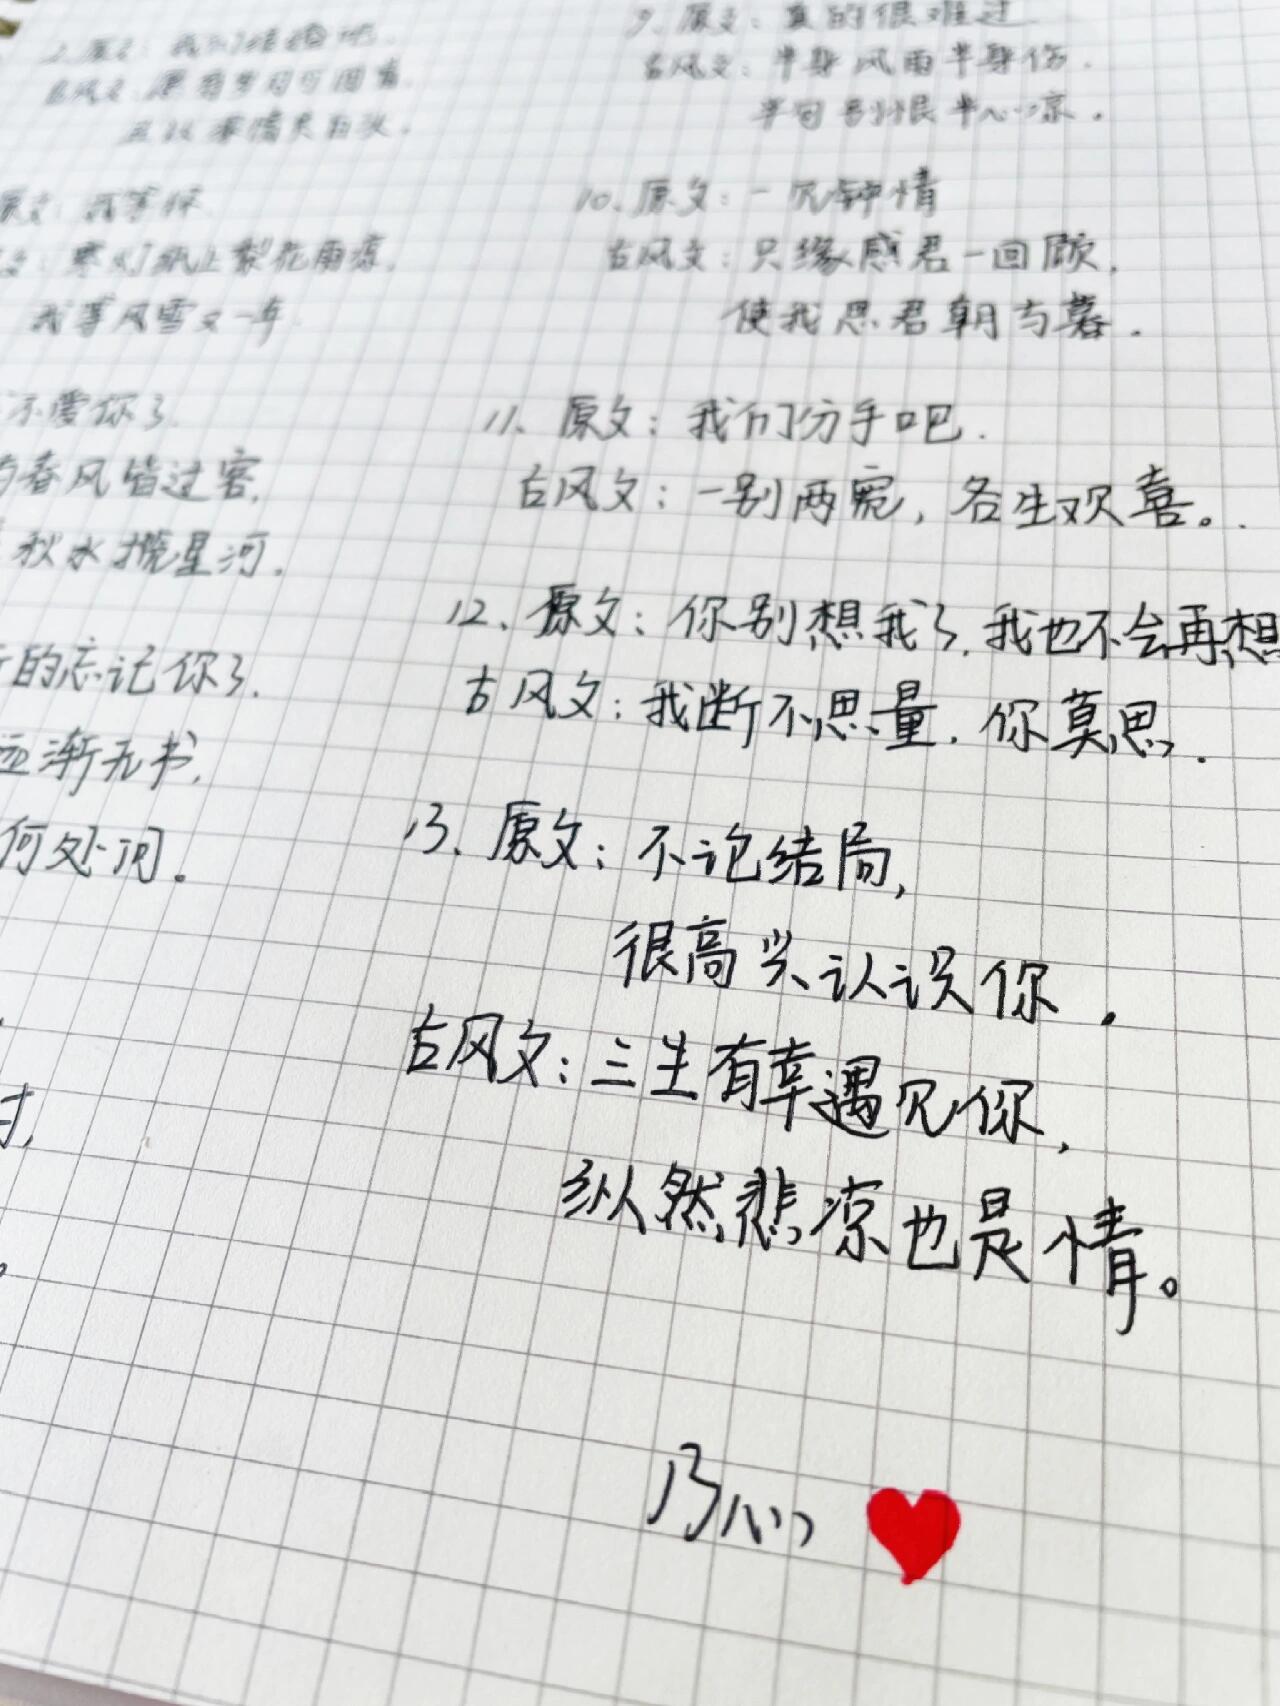 2.原文：我们结婚吧.
古风文：愿有岁月可回首.
且以深情共白头.
原文：我等你
文：寒灯纸上梨花雨凉,
我等风雪又一年
不爱你了.
与春风皆过客,
秋水揽星河.
的忘记你了.
渐无书,
何处问.
9.原文：真的很难过
古风文：半身风雨半身伤.
半句别恨半心凉.
10.原文：一见钟情
古风文：只缘感君一回顾,
使我思君朝与暮.
11、原文：我们分手吧.
古风文：一别两宽,各生欢喜。
12、原文：你别想我了,我也不会再想
古风文：我断不思量,你莫思.
13、原文：不论结局,
很高兴认识你.
古风文：三生有幸遇见你,
纵然悲凉也是情。
乃心